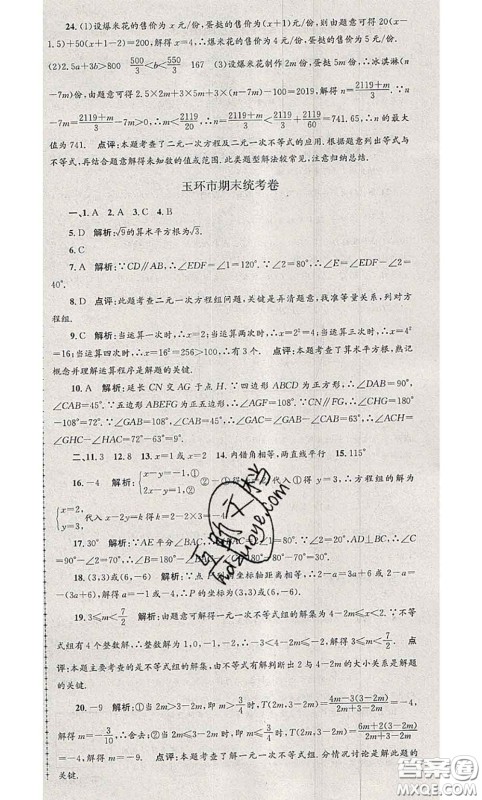 24. (1)设爆米花的售价为 x 元/份，蛋挞的售价为(x+1)元/份，则由题意可得 20(x-
1.5)+50(x+1)=200，解得 x=4，∴爆米花的售价为 4 元/份，蛋挞的售价为 5 元/份.
(2)2.5a+3b>800 550/3<b<550/3 167 (3)设爆米花制作 2m 份，蛋挞 m 份，∴冰淇淋(n
-7m)份，由题意可得 2.5×2m+3×5m+3×(n-7m)=2019-100+2m，解得 n=(2119+m)/3.∵n
-7m=(2119+m)/3-7m>0，∴m<2119/20，∴n=(2119+m)/3<2119/3+2119/60=741.65，∴n 的最大
值为 741. 点评：本题考查了二元一次方程及二元一次不等式的应用.根据题意列出等式与
不等式，再结合题意解得未知数的值或范围.此类题型解法较常见，注意归纳总结.
玉环市期末统考卷
一、1. A 2. A 3. C 4. B
5. D 解析：√9的算术平方根为√3.
6. C
7. A 解析：∵CD∥AB，∴∠EDF=∠1+∠2.∵∠2=80°，∴∠1=∠EDF-∠2=
40°.
8. D 点评：此题考查二元一次方程组问题，关键是弄清题意，找准等量关系，列对方
程组.
9. C 解析：当运算一次时，∴x=2；当运算二次时，∴x=2²=4；当运算三次时，∴x=4²
=16；当运算四次时，∴x=16²=256>100，∴有 3 个. 点评：本题考查了算术平方根，熟记
概念并理解运算程序是解题的关键.
10. A 解析：延长 CN 交 AG 于点 H.∵四边形 ABCD 为正方形，∴∠DAB=90°，
∠CAB=45°.∵五边形 ABEFG 为正五边形，∴∠AGF=108°.∵CN∥GF，∴∠GHN=180°
-108°=72°.∵∠GAB=108°，∴∠HAC=∠GAB-∠CAB=108°-45°=63°，∴∠ACN=
∠GHC-∠HAC=72°-63°=9°.
二、11. 3 12. 8 13. x=1 或 x=2 14. 内错角相等，两直线平行 15. 115°
16. -4 解析：{x-y=-1，① 2x-y=1，② ②-①得 x=2，代入①得 y=3，∴方程组的解为
{x=2，y=3，代入 x-2y=k 得 k=2-2×3=-4.
17. 30° 解析：∵AE 平分∠BAC，
18. (3,3)或(6,-6) 解析：∵点 坐标轴距离相等，∴2-a=3a+6 或 2-a=
-(3a+6)，解得 a=-1 或 a=-4，∴P 的坐标为(3,3)或(6,-6).
19. 3≤m<7/2 解析：由题意可解得一元一次不等式组的解集为
式组有 4 个整数解，∴整数解为 1,0,-1,-2，∴-3<4-2m≤-2，解得 3≤m<7/2. 点
评：本题主要考查的是不等式组的解集，由题意分析得到 4-2m 的大小关系是解题
的关键.
20. -9 解析：①当 2m>3-2m，即 m>3/4时，T(2m,3-2m)=(4m-3(3-2m))/(2m+3-2m)=-4，
解得 m=-3/10，∴舍去；②当 2m<3-2m，即 m<3/4时，T(2m,3-2m)=(6m+2(3-2m))/(2m+3-2m)
=-4，解得 m=-9. 点评：本题考查了解一元一次不等式组.分情况讨论是解此题的
关键.
答案圈
MXQE.COM